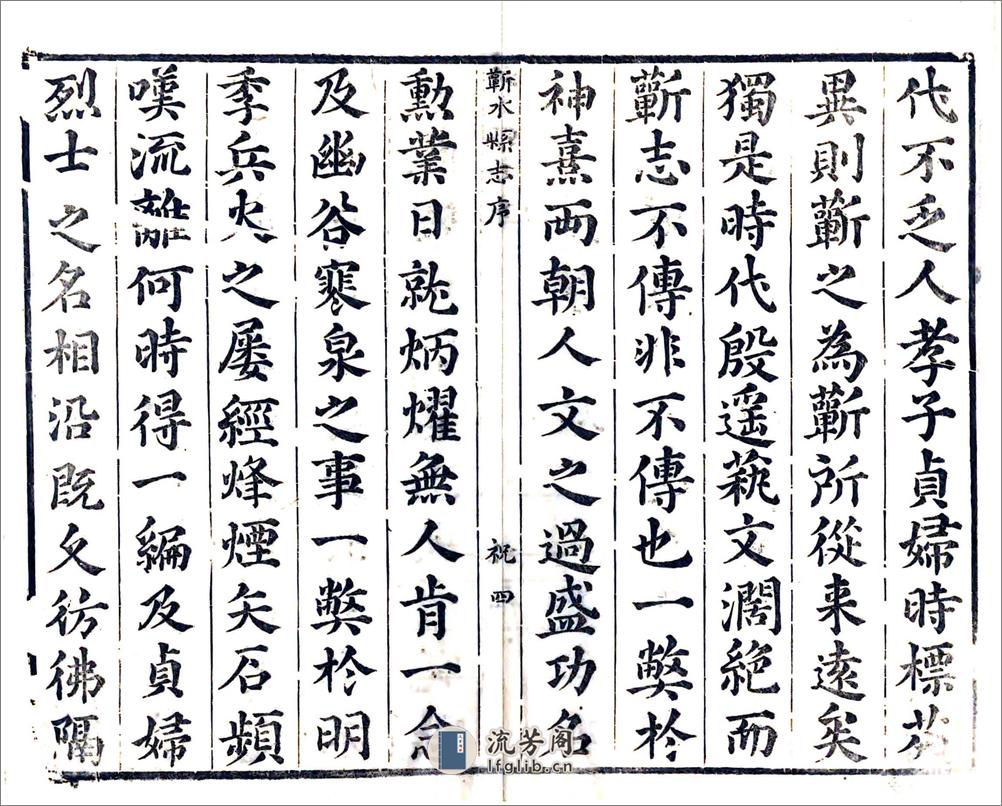 代不乏人孝子貞婦時標芬
異則蘄之為蘄所從来遠矣
獨是時代殷遥蓺文濶絶而
蘄志不傳非不傳也一弊於
神熹两朝人文之過盛功名
蘄水縣志序 祝 四
勲業日就炳燿無人肯一念
及幽谷寒泉之事一弊於明
季兵火之屡經烽煙矢石頻
嘆流離何時得一編及貞婦
烈士之名相沿既久彷彿隔
流芳阁
lfglib.cn